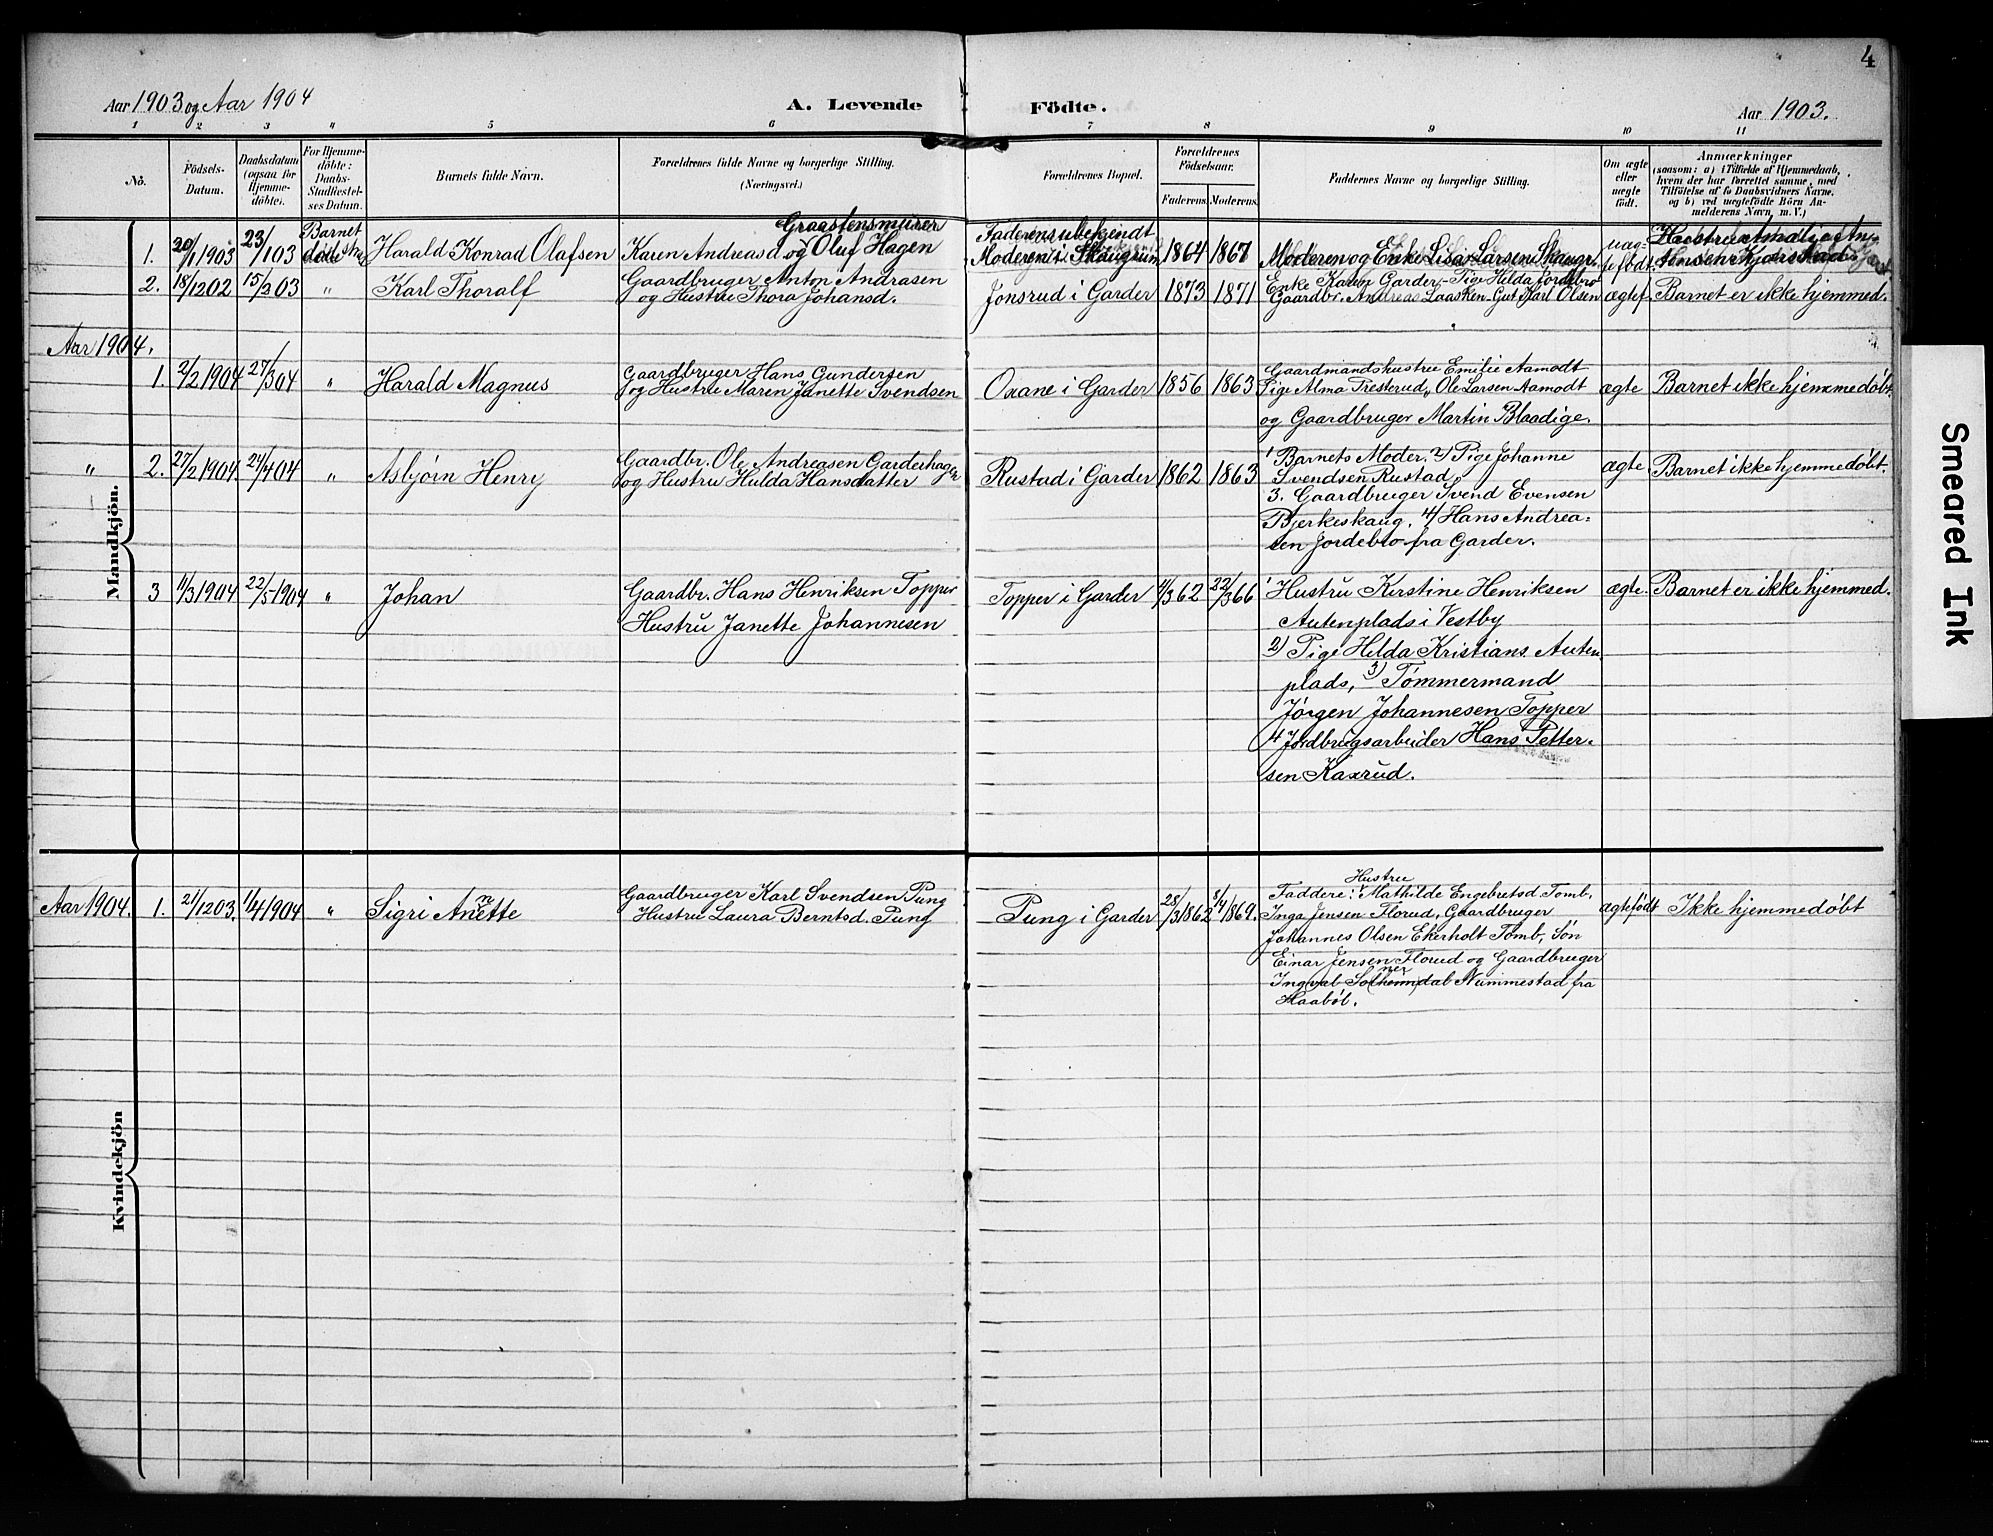 4
Aar 1903 og Aar 1904
A. Levende Födte.
Aar 1903.
1 2 3 " 5 6 7 8 9 10 11
No.
Födsels-Datum.
Daabsdatum (ogsaa for Hjemme-döbte).
For Hjemme-döbte: Daabs-Stadfæstel-ses Datum.
Barnets fulde Navn.
Forældrenes fulde Navne og borgerlige Stilling.
(Næringsvei.)
Forældrenes Bopæl.
Forældrenes Födselsaar.
Faderens. Moderens.
Faddernes Navne og borgerlige Stilling.
Om ægte eller uægte födt.
Anmærkninger
(saasom: a) i Tilfælde af Hjemmedaab,
hvem der har forrettet samme, med
Tilföielse af to Daabsvidners Navne,
og b) ved uægtefödte Börn An-
melderens Navn, m. V.)
1. 20/1 1903 23/1 03 Barnet döde
Harald Konrad Olafsen
Graastensmurer
Karen Andreasd og Oluf Hagen
Faderens ubekjendt
Moderens i Skaugrum
1864 1867
Moderen og Enke Lisa Larsen Skaugr.
uæg-
tefödt.
Hustru
Jensen
2. 18/12 02 15/3 03 "
Karl Thoralf
Gaardbruger Anton Andrasen
og Hustru Thora Johansd.
Jonsrud i Garder 1873 1871
Enke Karen Garder, Pige Hilda Jordebro
Gaardbr. Andreas Laasken Gut Karl Olsen
ægtef. Barnet er ikke hjemmed.
Aar 1904.
1. 2/2 1904 27/3 04 "
Harald Magnus
Gaardbruger Hans Gundersen
og Hustru Maren Janette Svendsen
Oxane i Garder 1856 1863
Gaardmandshustru Emilie Aamodt
Pige Alma Tresterud, Ole Larsen Aamodt
og Gaardbruger Martin Blaadige.
ægte Barnet ikke hjemmedøbt.
" 2. 27/2 1904 24/4 04 "
Asbjørn Henry
Gaardbr. Ole Andreasen Garderhagen
og Hustru Hulda Hansdatter
Rustad i Garder 1862 1863
1 Barnets Moder. 2/ Pige Johanne
Svendsen Rustad,
3. Gaardbruger Svend Evensen
Bjerkeskaug, 4/ Hans Andrea-
sen Jordebro fra Garder.
ægte Barnet ikke hjemmedøbt.
3 11/3 1904 22/5 1904 "
Johan
Gaardbr. Hans Henriksen Topper
Hustru Janette Johannesen
Topper i Garder 4/3 62 22/3 66
1 Hustru Kirstine Henriksen
Autenplads i Vestby
2) Pige Helda Kristians. Auten-
plads, 3) Tømmermand
Jørgen Johannesen Topper
4 Jordbrugsarbeider Hans Petter-
sen Kaxrud.
ægte. Barnet er ikke hjemmed.
Mandkjön.
Aar 1904. 1. 21/12 03. 1/4 1904 "
Sigri Anette
Gaardbruger Karl Svendsen Pung
Hustru Laura Berntsd. Pung
Pung i Garder 28/3 1862 8/4 1869.
Hustru
Faddere: Mathilde Engebretsd. Tomb,
Inga Jensen Florud, Gaardbruger
Johannes Olsen Ekerholt Tomb, Søn
Einar Jensen Florud og Gaardbruger
Nummestad fra
Haabøl.
ægtefødt Ikke hjemmedøbt
Kvindekjön
Smeared Ink